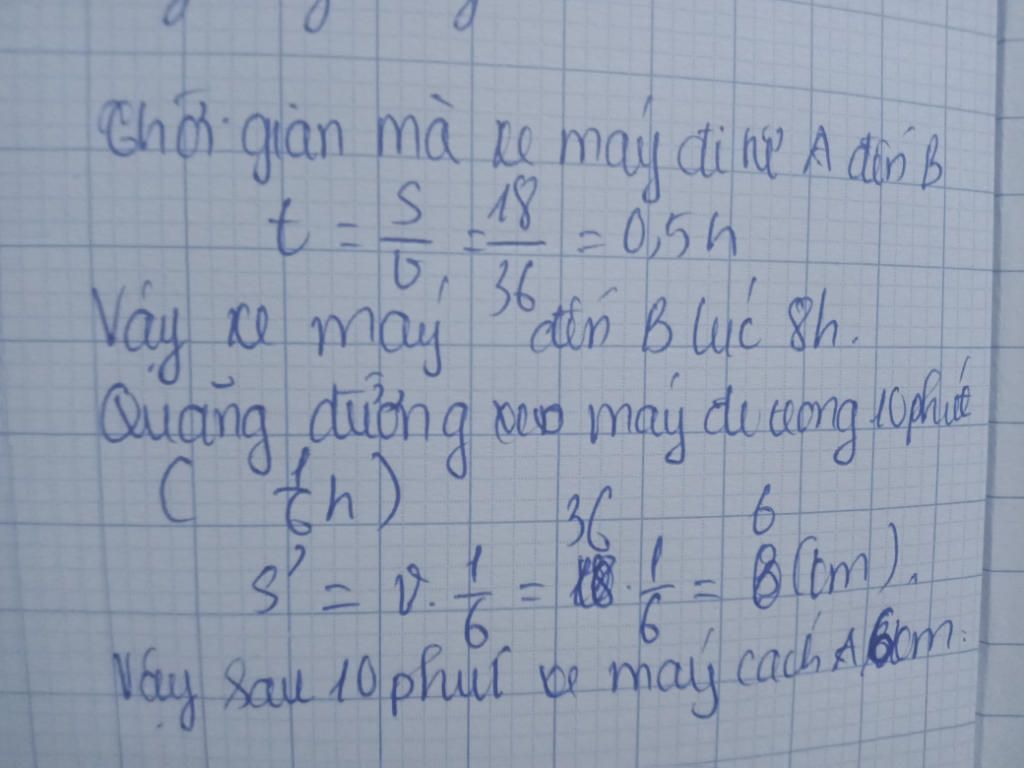 Thời gian mà xe máy đi từ A đến B
t = S/v = 18/36 = 0,5h
Vậy xe máy đến B lúc 8h.
Quãng đường xe máy đi trong 10 phút
( 1/6 h )
36 6
S' = v. 1/6 = 18. 1/6 = 8 (km).
Vậy sau 10 phút xe máy cách A 6km.